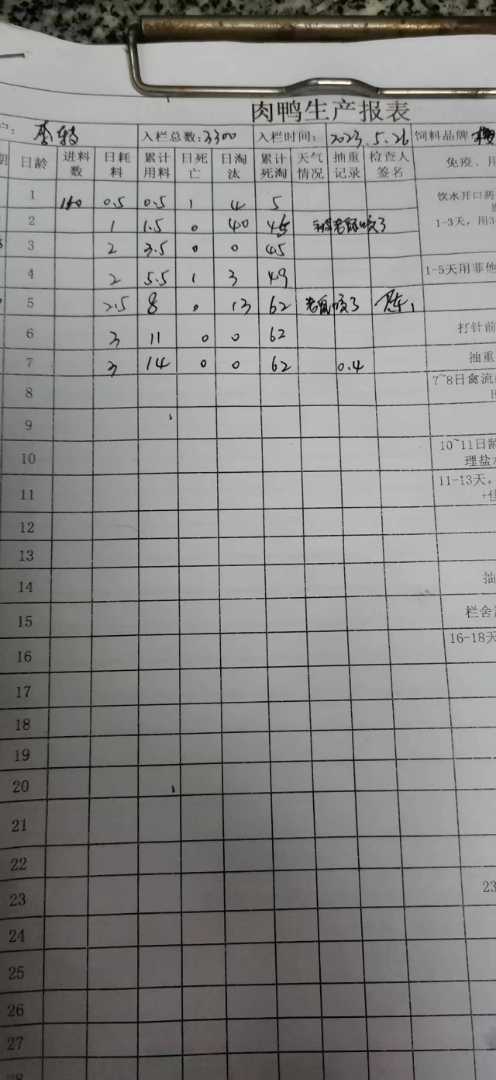 肉鸭生产报表
户: 入栏总数:3300 入栏时间: 2023.5.26 饲料品牌
期 日龄 进料数 日耗料 累计用料 日死亡 日淘汰 累计死淘 天气情况 抽重记录 检查人签名 免疫、用
1 180 0.5 0.5 1 4 5 饮水开口药
2 1 1.5 0 40 45 老鼠咬了 1-3天,用3
3 2 3.5 0 0 45
4 2 5.5 1 3 49 1-5天用菲他
5 2.5 8 0 13 62 老鼠咬了
6 3 11 0 0 62 打针前
7 3 14 0 0 62 0.4 抽重
8 7~8日禽流
9
10 10~11日龄 理盐水
11 11-13天,
12
13
14 抽
15 栏舍
16 16-18天
17
18
19
20
21
22
23 23
24
25
26
27
28